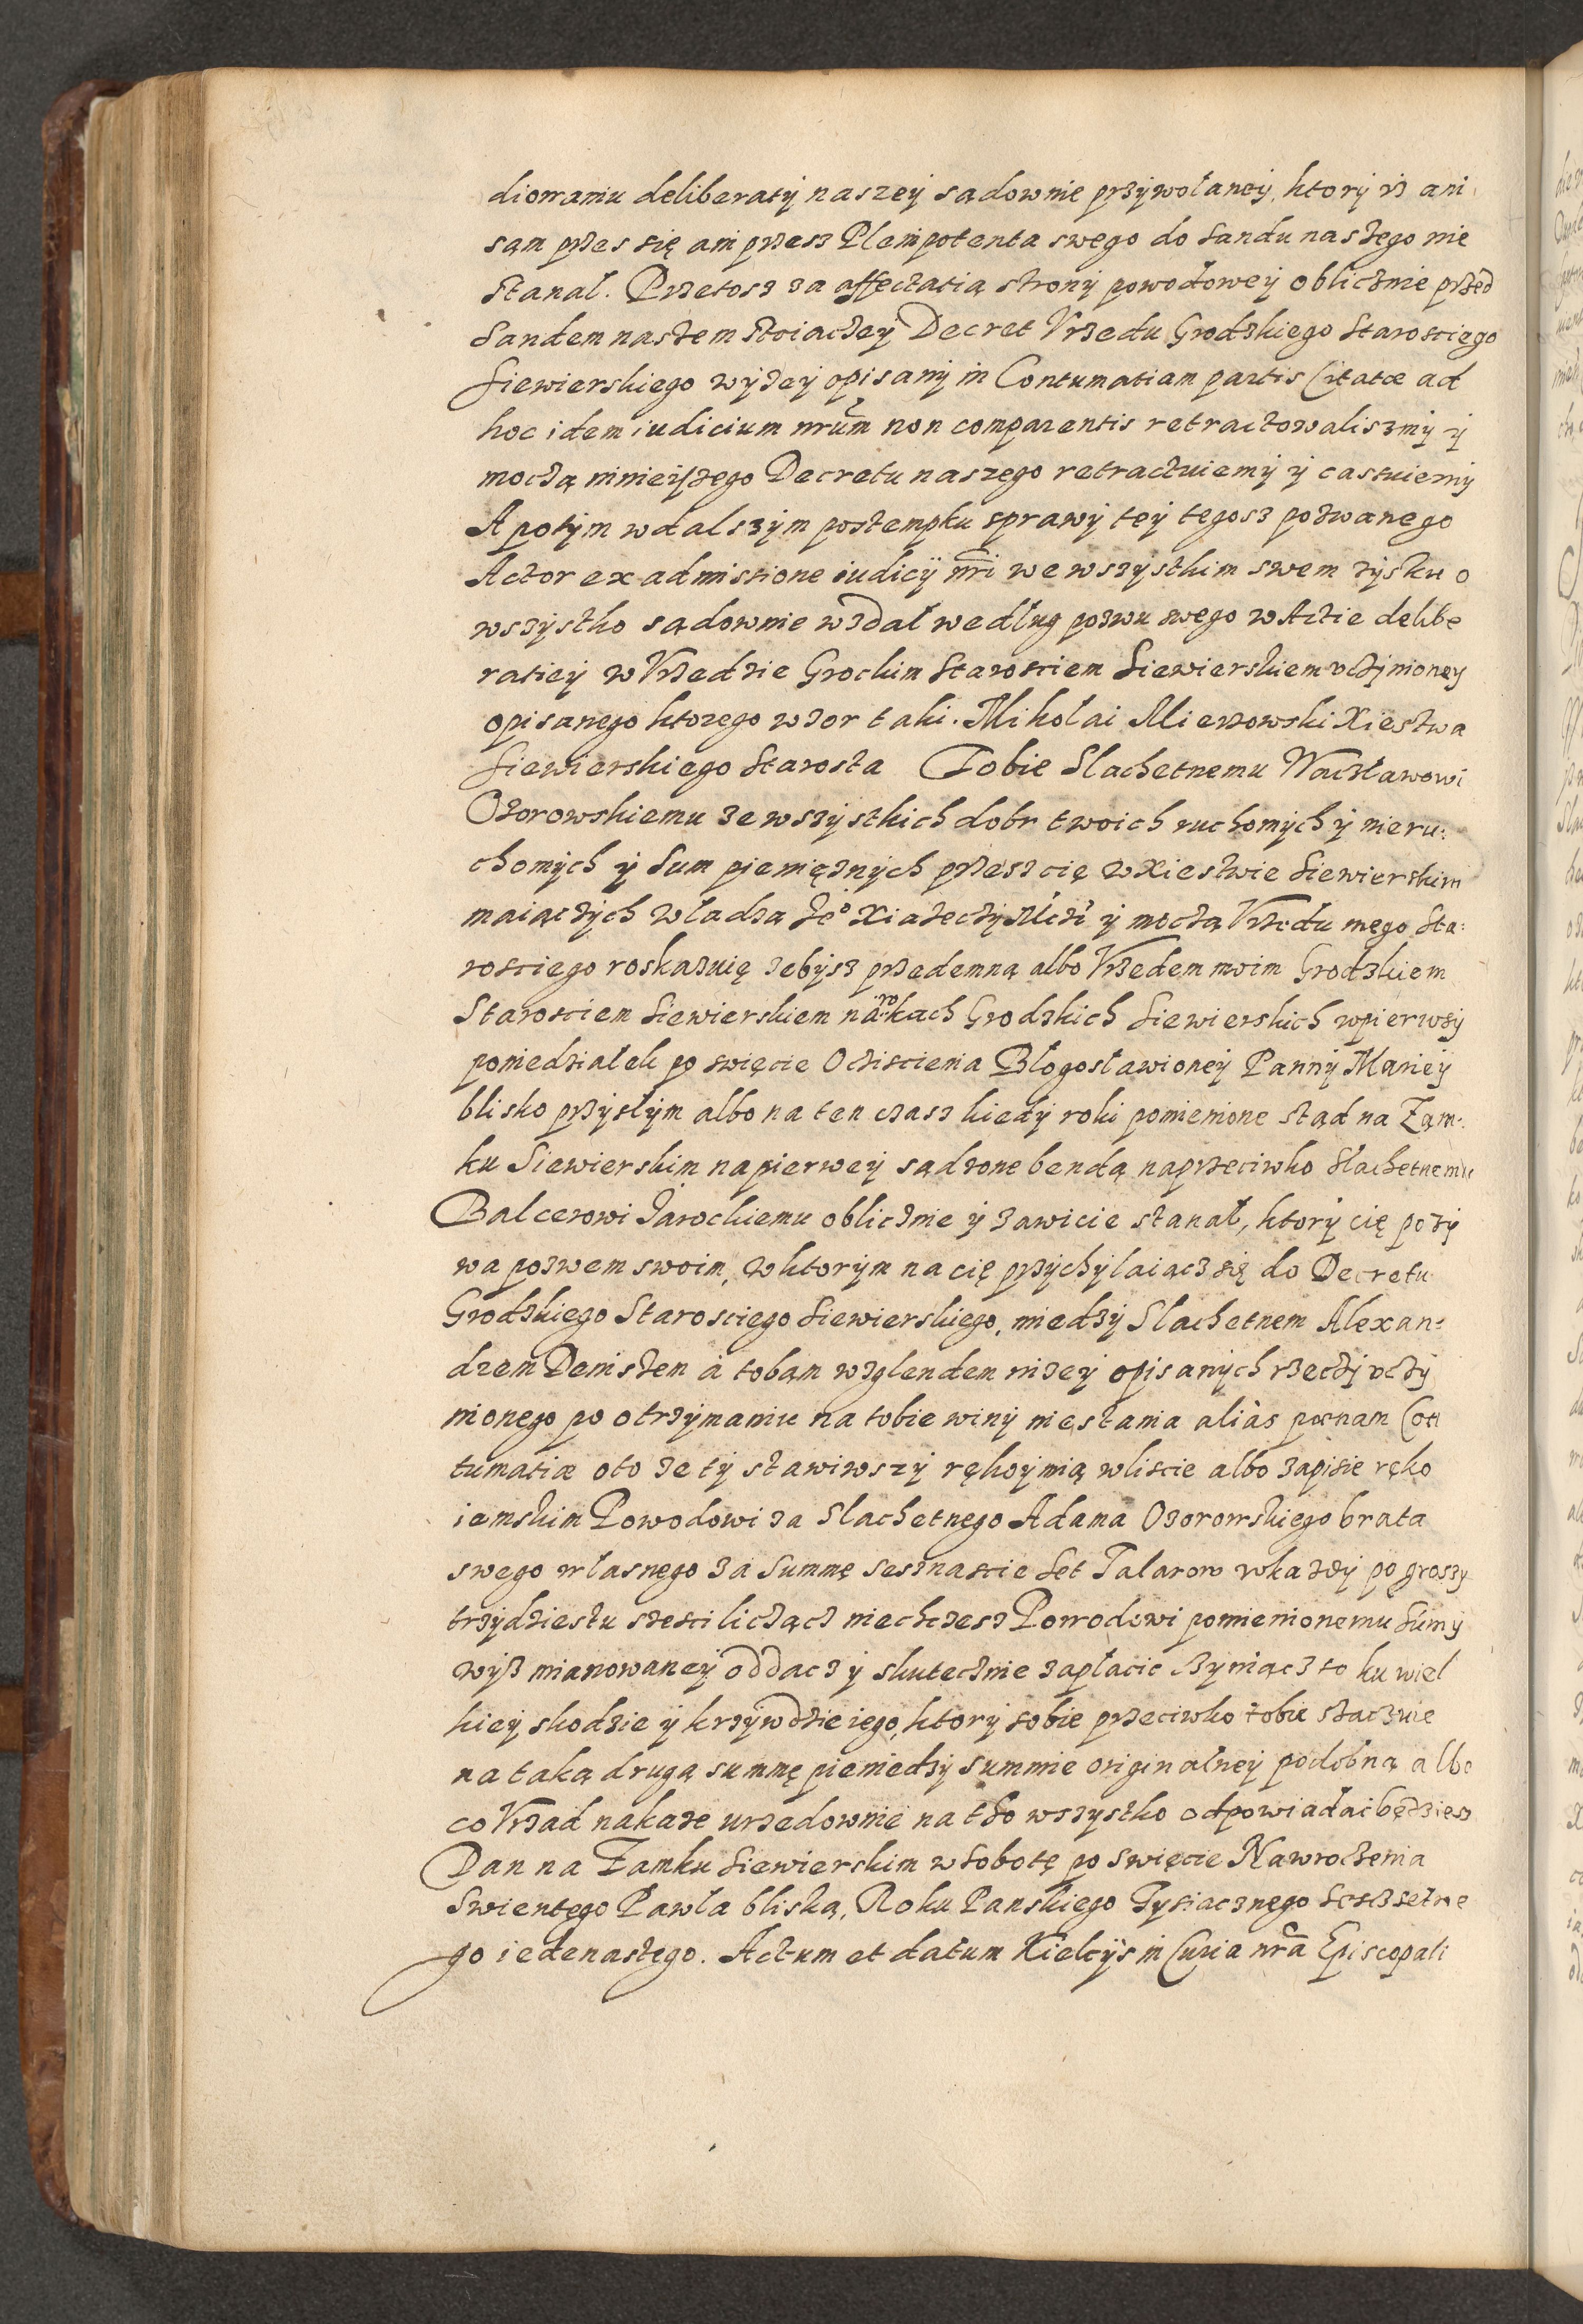 diowaniu deliberatÿ naszeÿ sądownie przÿwołaneÿ, ktorÿ isz ani
sąm przes się ani przesz Plenipotenta swego do Sandu naszego nie
stanał. Przetosz za affectatią stronÿ powodoweÿ oblicznie przed
Sandem naszem stoiaczeÿ Decret Vrzedu Grodzkiego Starosciego
Siewierskiego wÿzeÿ opisanÿ in Contumatiam partis Citatæ ad
hoc idem iudicium nrum non comparentis retractowaliszmÿ ÿ
moczą ninieiszego Decretu naszego retractuiemÿ ÿ cassuiemÿ
A potÿm w dalszÿm postempku sprawÿ teÿ tegosz pozwanego
Actor ex admissione iudicÿ nri we wszÿstkim swem zÿsku o
wszÿstko sądownie wzdał według pozwu swego w Actie delibe
ratieÿ w Vrzedzie Grockim Starosciem Siewierskiem vczÿnioneÿ
opisanego ktorego wzor taki. Mikołai Mierzowski Xiestwa
Siewierskiego Starosta Tobie Slachetnemu Wacławowi
Ozorowskiemu ze wszÿstkich dobr twoich ruchomÿch ÿ nieru:
chomÿch ÿ Sum pieniężnÿch przesz cię w Xiestwie Siewierskim
maiączÿch władzą Jeo Xiażeczÿ Mczi ÿ moczą Vrzedu mego Sta:
rosciego roskazuię żebÿsz przedemną albo Vrzedem moim Grodzkiem
Starosciem Siewierskiem na rokach Grodzkich Siewierskich w pierwszÿ
poniedziałek po swięcie Ocziscienia Błogosławioneÿ Pannÿ Marieÿ
blisko przÿsłÿm albo na ten czasz kiedÿ roki pomienione stąd na Ząm:
ku Siewierskim napierweÿ sądzone bendą naprzeciwko Slachetnemu
Balcerowi Jarockiemu oblicznie ÿ zawicie stanał, ktorÿ cię pozÿ
wa pozwem swoim, w ktorÿm na cię przÿchÿlaiącz się do Decretu
Grodzkiego Starosciego Siewierskiego, miedzÿ Slachetnem Alexan:
drem Demszem a tobąm wzglendem nizeÿ opisanÿch rzeczÿ vczÿ
nionego po otrzÿmaniu na tobie winÿ niestania alias pœnam Con
tumatiæ oto ze tÿ stawiwszÿ rękoÿmią w liscie albo zapisie ręko
iemskim Powodowi za Slachetnego Adama Ozorowskiego brata
swego własnego za Summę sesznascie Set Talarow w każdÿ po groszÿ
trzÿdziestu szesci licząncz niechczesz Powodowi pomienionemu Sumÿ
wÿsz mianowaneÿ oddacz ÿ skutecznie zapłacic czÿniącz to ku wiel
kieÿ skodzie ÿ krzÿwdzie iego, ktorÿ sobie przeciwko tobie szaczuie
na taką drugą summę pieniedzÿ summie originalneÿ podobną albo
co Vrzad nakaze urzedownie na tho wszÿstko odpowiadac będziesz
Dan na Zamku Siewierskim w Sobotę po Swięcie Nawroczenia
Swientego Pawla bliską, Roku Panskiego Tÿsiacznego Szeszsetne
go iedenastego. Actum et datum Kielcÿs in Curia nra Episcopali